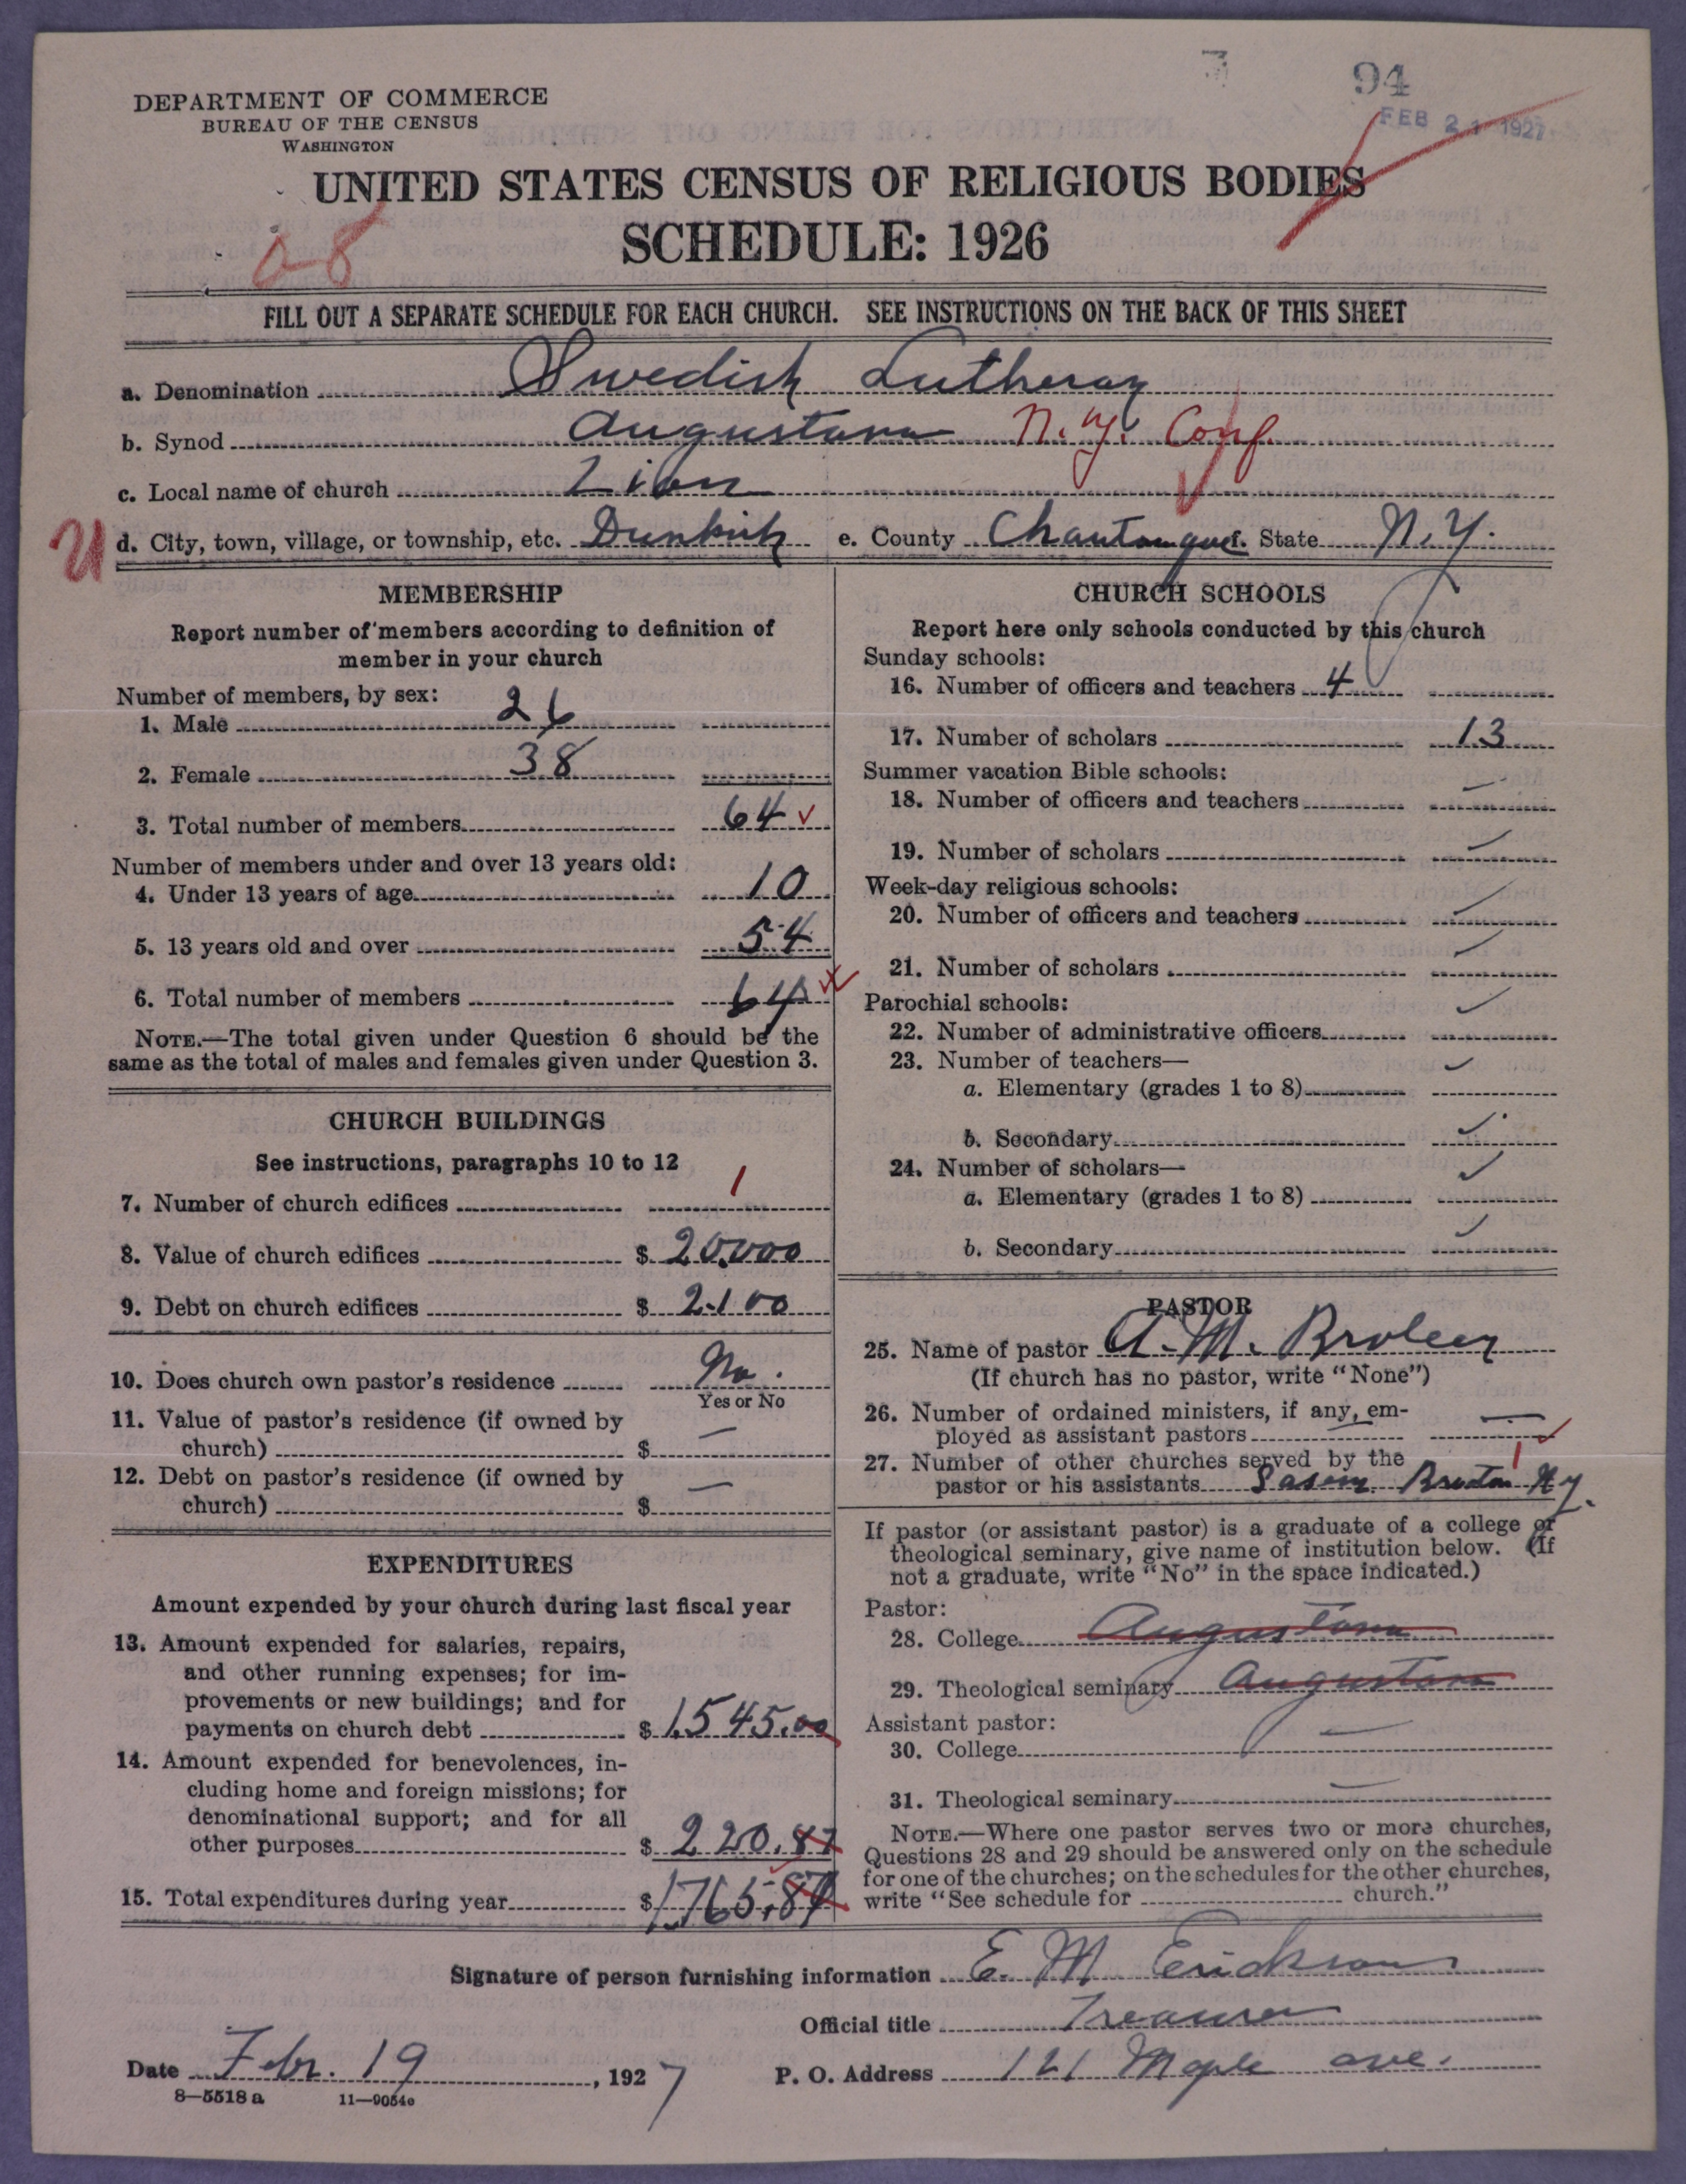 94
FEB 21 1927
DEPARTMENT OF COMMERCE
BUREAU OF THE CENSUS
WASHINGTON
UNITED STATES CENSUS OF RELIGIOUS BODIES
SCHEDULE: 1926
FILL OUT A SEPARATE SCHEDULE FOR EACH CHURCH. SEE INSTRUCTIONS ON THE BACK OF THIS SHEET
a. Denomination Swedish Lutheran
b. Synod Augustana N.Y. Conf.
c. Local name of church Zion
d. City, town, village, or township, etc. Dunkirk e. County Chautauqua f. State N.Y.
MEMBERSHIP
Report number of members according to definition of
member in your church
Number of members, by sex:
1. Male 26
2. Female 38
3. Total number of members 64
Number of members under and over 13 years old:
4. Under 13 years of age 10
5. 13 years old and over 54
6. Total number of members 64
NOTE.—The total given under Question 6 should be the
same as the total of males and females given under Question 3.
CHURCH BUILDINGS
See instructions, paragraphs 10 to 12
7. Number of church edifices 1
8. Value of church edifices $ 20,000
9. Debt on church edifices $ 2100
10. Does church own pastor's residence No.
Yes or No
11. Value of pastor's residence (if owned by
church) $ —
12. Debt on pastor's residence (if owned by
church) $ —
EXPENDITURES
Amount expended by your church during last fiscal year
13. Amount expended for salaries, repairs,
and other running expenses; for im-
provements or new buildings; and for
payments on church debt $ 1,545.00
14. Amount expended for benevolences, in-
cluding home and foreign missions; for
denominational support; and for all
other purposes $ 220.87
15. Total expenditures during year $ 1,765.87
CHURCH SCHOOLS
Report here only schools conducted by this church
Sunday schools:
16. Number of officers and teachers 4
17. Number of scholars 13
Summer vacation Bible schools:
18. Number of officers and teachers —
19. Number of scholars
Week-day religious schools:
20. Number of officers and teachers
21. Number of scholars
Parochial schools:
22. Number of administrative officers
23. Number of teachers—
a. Elementary (grades 1 to 8)
b. Secondary
24. Number of scholars—
a. Elementary (grades 1 to 8)
b. Secondary
PASTOR
25. Name of pastor A. M. Broleen
(If church has no pastor, write "None")
26. Number of ordained ministers, if any, em-
ployed as assistant pastors —
27. Number of other churches served by the 1
pastor or his assistants N.Y.
If pastor (or assistant pastor) is a graduate of a college or
theological seminary, give name of institution below. (If
not a graduate, write "No" in the space indicated.)
Pastor:
28. College Augustana
29. Theological seminary Augustana
Assistant pastor:
30. College —
31. Theological seminary —
NOTE.—Where one pastor serves two or more churches,
Questions 28 and 29 should be answered only on the schedule
for one of the churches; on the schedules for the other churches,
write "See schedule for church."
Signature of person furnishing information E. M. Erickson
Official title Treasurer
Date Febr. 19, 1927 P. O. Address 121 Maple ave.
8—5518a 11—9054